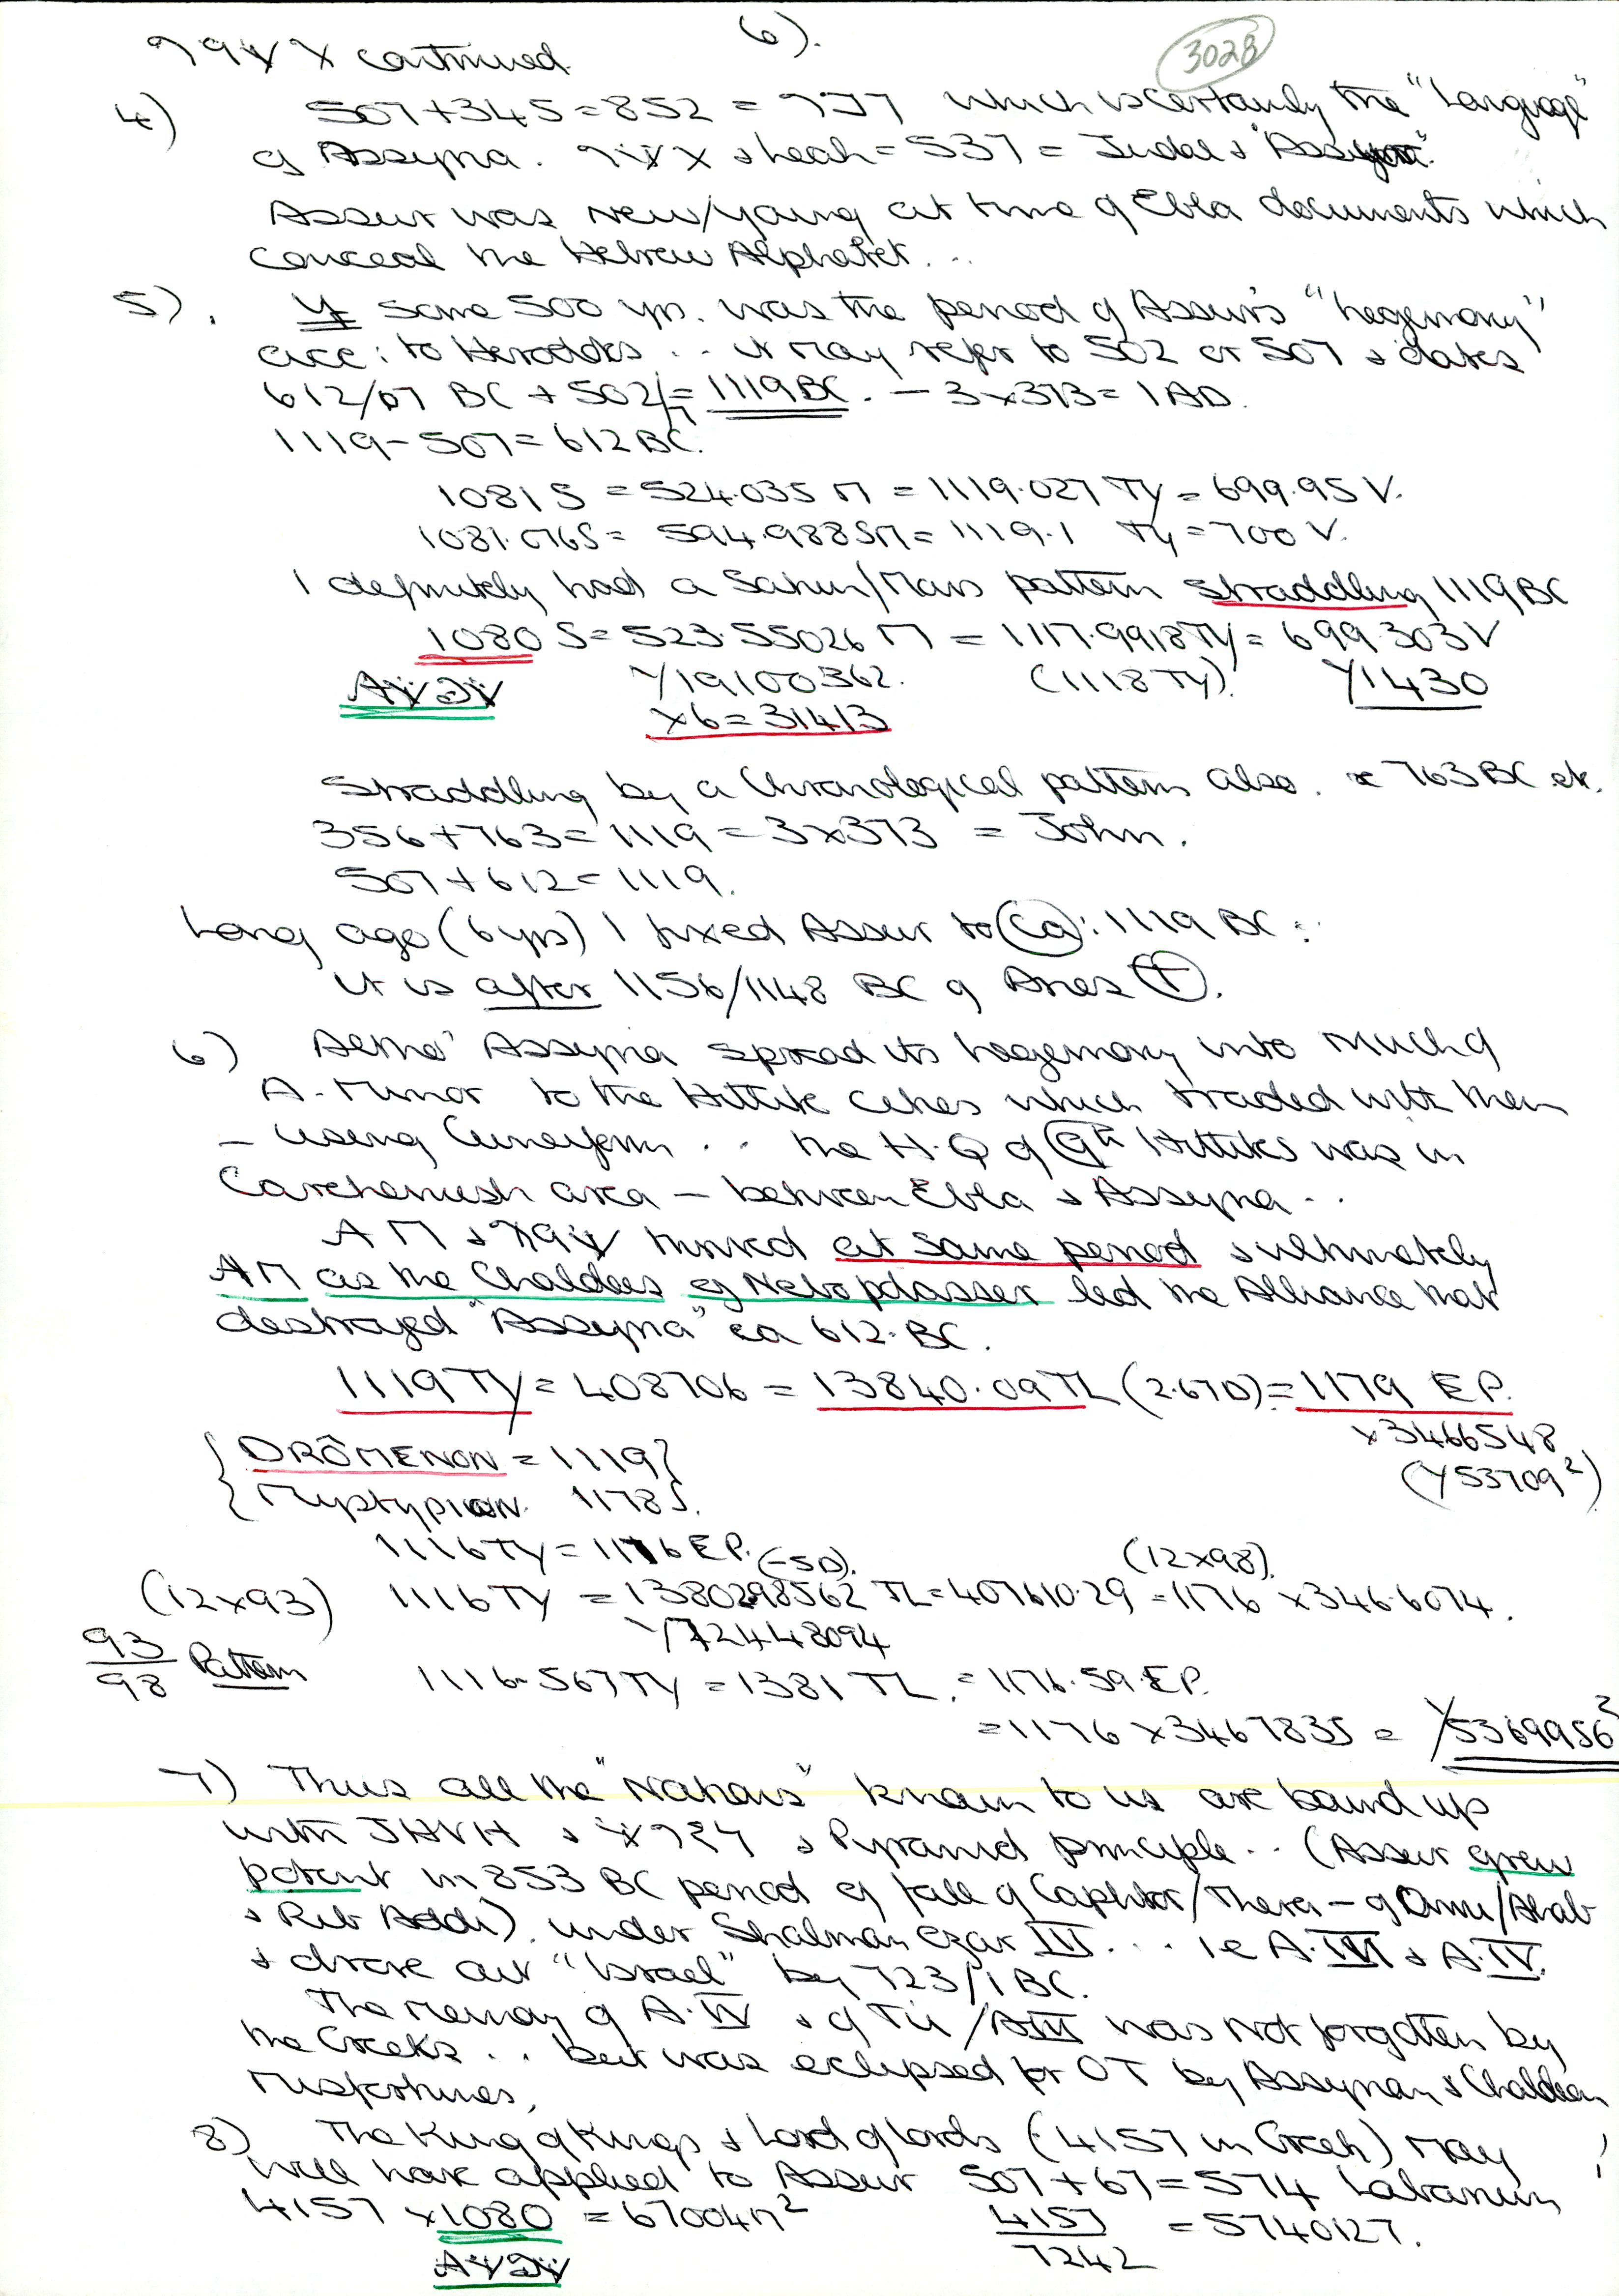 6).
3028
continued
4) 507+345=852 = which is certainly the "Language"
of Assyria. + Leah = 537 = Judah + "Assyria".
Assur was new/young at time of Ebla documents which
conceal the Hebrew Alphabet...
5). If some 500 yrs. was the period of Assur's "hegemony"
acc: to Herodotos .. it may refer to 502 or 507 + dates
612/07 BC + 502/7 = 1119 BC. - 3x373 = 1 AD.
1119-507=612 BC.
1081 S = 524.035 M = 1119.027 TY = 699.95 V.
1081.076S = 594.9885M = 1119.1 TY = 700 V.
I definitely had a Saturn/Mars pattern straddling 1119 BC
1080 S = 523.55026 M = 1117.9918 TY = 699.303 V
√19100362. (1118 TY). √1430
x6 = 31413
Straddling by a Chronological pattern also. 763 BC etc.
356+763=1119=3x373 = John.
507+612=1119.
Long ago (6 yrs) I fixed Assur to (ca): 1119 BC:
It is after 1156/1148 BC of Ares
6) Assyria spread its hegemony into much of
A. Minor to the Hittite cities which traded with them
- using Cuneiform .. the H.Q of Hittites was in
Carchemish area - between Ebla & Assyria ..
at same period & ultimately
AM as the Chaldees of led the Alliance that
destroyed "Assyria" ca 612. BC.
1119 TY = 408706 = 13840.09 TL (2.67D) = 1179 EP.
x3466548
(√53709²)
{DRÔMENON = 1119}
1178
1116 TY = 1176 EP. (-5D). (12x98).
(12x93) 1116 TY = 1380298562 TL = 407610.29 = 1176 x346.6074.
√72448094
93/98 Pattern 1116.567 TY = 1381 TL. = 1176.59 EP.
= 1176 x3467835 = √5369956²
7) Thus all the "Nations" known to us are bound up
with JHVH + + Pyramid principle.. (Assur grew
potent in 853 BC period of fall of Caphtor/Thera - of Omri/Ahab
+ Rib Addi). under Shalman Ezar III... ie A.III + A.IV.
+ drove out "Israel" by 723/1 BC.
The memory of A.IV + of Tii/AIII was not forgotten by
the Greeks .. but was eclipsed for OT by Assyrian & Chaldean
misfortunes,
8) The King of Kings + Lord of Lords (4157 in Greek) may
well have applied to Assur 507+67=574
4157 x1080 = 67004n² 4157/7242 = 5740127.